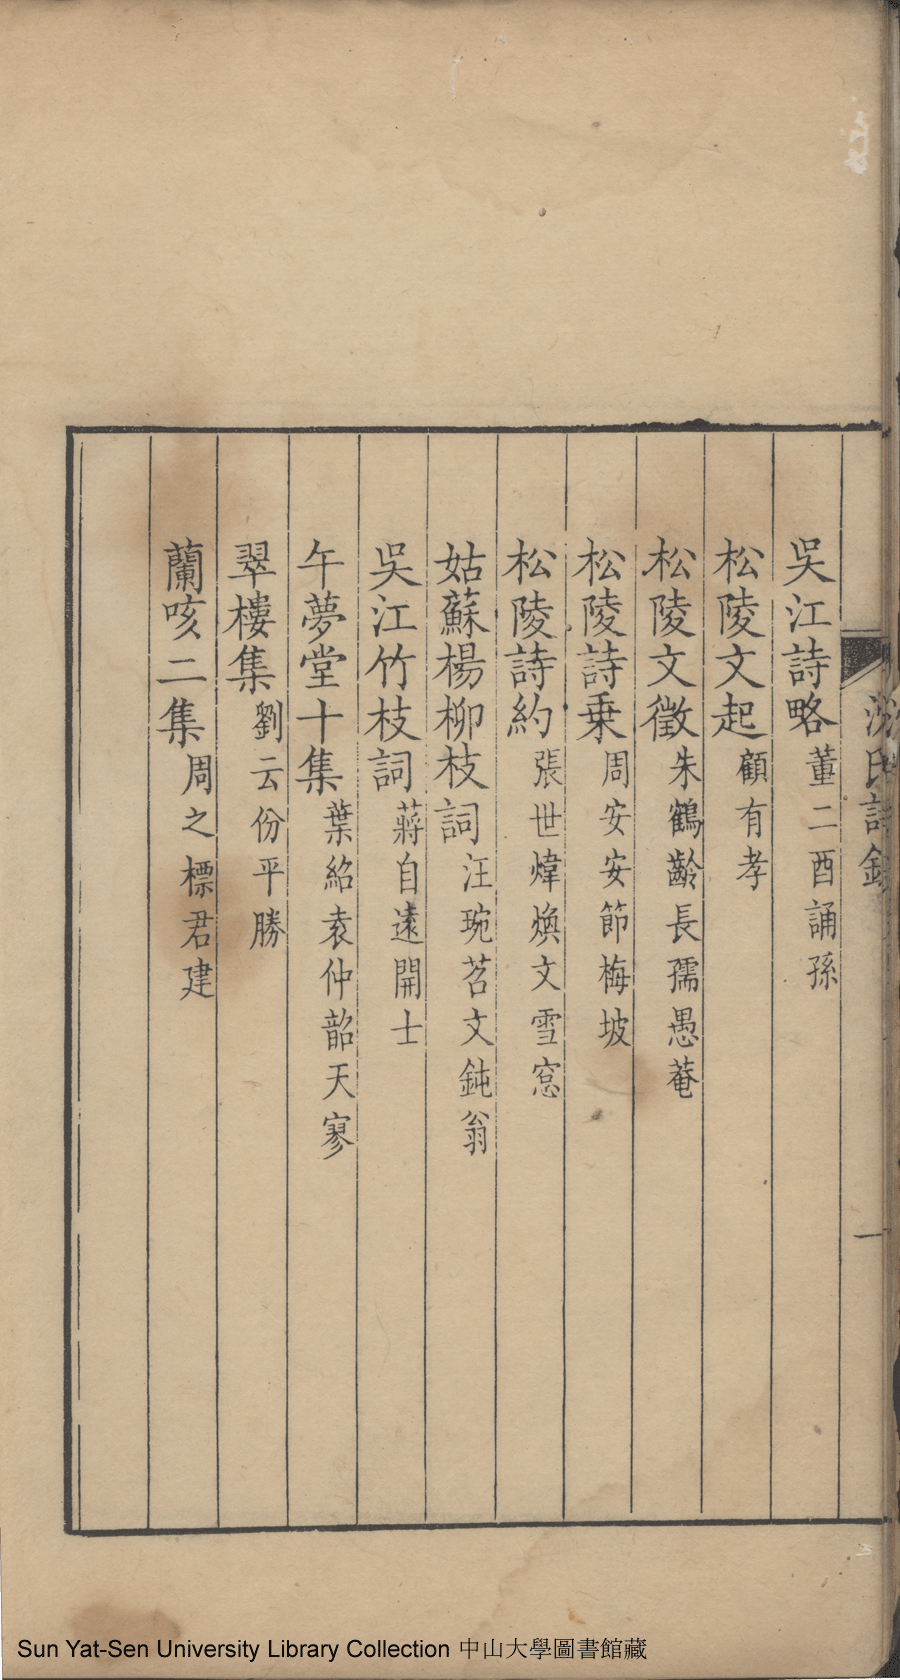 沈氏詩錄
一
吳江詩略董二酉誦孫
松陵文起顧有孝
松陵文徵朱鶴齡長孺愚菴
松陵詩乗周安安節梅坡
松陵詩約張世煒煥文雪窓
姑蘇楊柳枝詞汪琬苕文鈍翁
吳江竹枝詞蔣自遠開士
午夢堂十集葉紹袁仲韶天寥
翠樓集劉云份平勝
蘭咳二集周之標君建
Sun Yat-Sen University Library Collection 中山大學圖書館藏